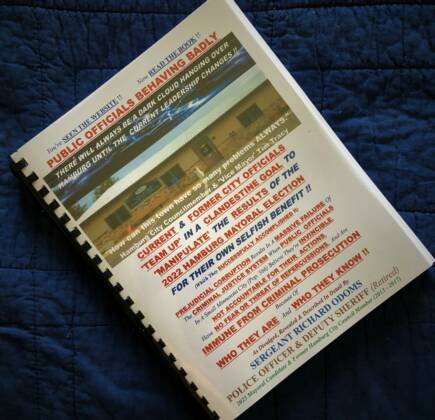 You've SEEN THE WEBSITE !! Now READ THE BOOK !!
PUBLIC OFFICIALS BEHAVING BADLY
THERE WILL ALWAYS BE A DARK CLOUD HANGING OVER
HAMBURG UNTIL THE CURRENT LEADERSHIP CHANGES !!
"How can this town have so many problems ALWAYS."
Hamburg City Councilmember & 'Vice Mayor' Tim Tracy
CURRENT & FORMER CITY OFFICIALS
'TEAM UP' IN A CLANDESTINE GOAL TO
"MANIPULATE" THE RESULTS OF THE
2022 HAMBURG MAYORAL ELECTION
FOR THEIR OWN SELFISH BENEFIT !!
(Which The SUCCESSFULLY ACCOMPLISHED !!)
PREJUDICIAL CORRUPTION Results In A MASSIVE FAILURE Of
CRIMINAL JUSTICE SYSTEM When PUBLIC OFFICIALS
In A Small Minnesota City (Pop. 566) Believe They're INVINCIBLE,
NOT ACCOUNTABLE FOR THEIR ACTIONS,
Have NO FEAR OR THREAT OF REPERCUSSIONS, And Are
IMMUNE FROM CRIMINAL PROSECUTION
Because Of
WHO THEY ARE And WHO THEY KNOW !!
As Divulged, Revealed & Described In Detail By
SERGEANT RICHARD ODOMS
POLICE OFFICER & DEPUTY SHERIFF (Retired)
2022 Mayoral Candidate & Former Hamburg City Council Member (2013 - 2017)